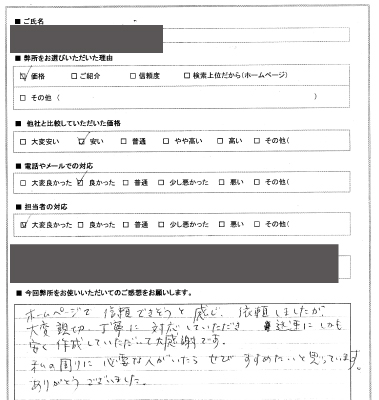 ■ ご氏名
■ 弊所をお選びいただいた理由
☑ 価格 □ ご紹介 □ 信頼度 □ 検索上位だから(ホームページ)
□ その他 ( )
■ 他社と比較していただいた価格
□ 大変安い ☑ 安い □ 普通 □ やや高い □ 高い □ その他(
■ 電話やメールでの対応
□ 大変良かった ☑ 良かった □ 普通 □ 少し悪かった □ 悪い □ その他(
■ 担当者の対応
☑ 大変良かった □ 良かった □ 普通 □ 少し悪かった □ 悪い □ その他(
■ 今回弊所をお使いいただいてのご感想をお願いします。
ホームページで 信頼できそうと感じ、依頼しましたが、
大変親切、丁寧に 対応していただき 迅速に しかも
安く 作成していただいて大感謝です。
私の周りに 必要な人がいたら ぜひ すすめたいと思っています。
ありがとう ございました。